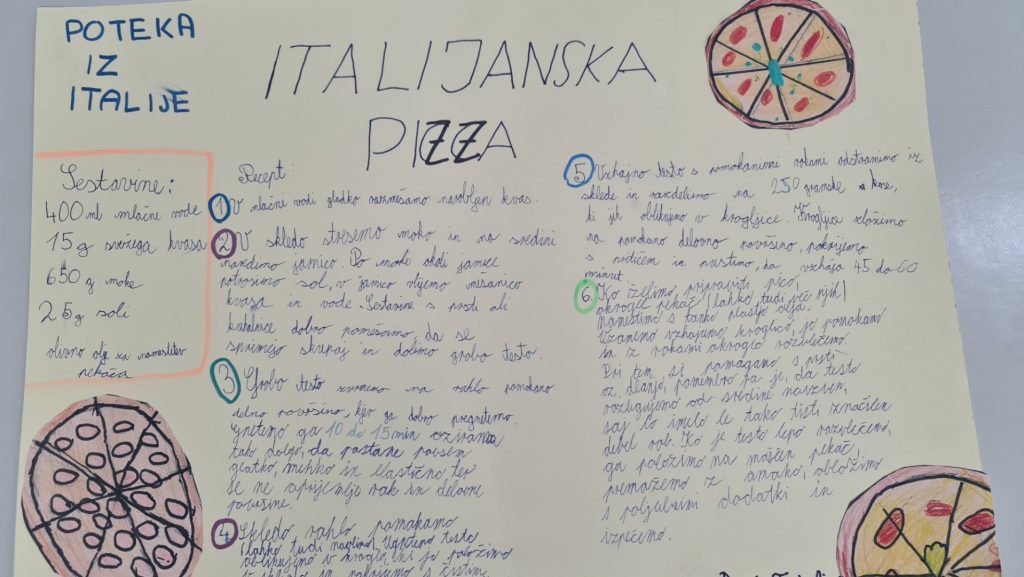 POTEKA
IZ
ITALIJE
ITALIJANSKA
PIZZA
Sestavine:
400 ml mlačne vode
15 g svežega kvasa
650 g moke
25 g soli
olivno olje za namastitev
pekača
Recept:
1 V mlačni vodi gladko razmešamo nadrobljen kvas.
2 V skledo stresemo moko in na sredini
naredimo jamico. Po moki okoli jamice
potrosimo sol, v jamico vlijemo mešanico
kvasa in vode. Sestavine s prsti ali
kuhalnico dobro pomešamo, da se
sprimejo skupaj in dobimo grobo testo.
3 Grobo testo zvrnemo na rahlo pomokano
delno površino, kjer ga dobro pregnetemo.
Gnetemo ga 10 do 15 min oziroma
tako dolgo, da postane povsem
gladko, mehko in elastično ter
se ne oprijemlje rok in delovne
površine.
4 Skledo rahlo pomokamo
(lahko tudi naoljimo). Ugneteno testo
oblikujemo v kroglo, ki jo položimo
v skledo in pokrijemo s čistim
5 Vzhajno testo s pomokanimi rokami odstranimo iz
sklede in razdelimo na 250 gramske kose,
ki jih oblikujemo v krogljice. Krogljice zložimo
na pomokano delovno površino, pokrijemo
s prtičem in pustimo, da vzhaja 45 do 60
minut.
6 Ko želimo pripraviti pico,
okrogel pekač (lahko tudi več njih)
namastimo s tanko plastjo olja.
Vzamemo vzhajano kroglico, jo pomokamo
in z rokami okroglo razvlečemo.
Pri tem si pomagamo s prsti
oz. dlanjo, pomembno pa je, da testo
raztegujemo od sredine navzven,
saj bo imelo le tako tisti značilen
debel rob. Ko je testo lepo razvlečeno,
ga položimo na maščen pekač,
premažemo z omako, obložimo
s poljubnimi dodatki in
spečemo.